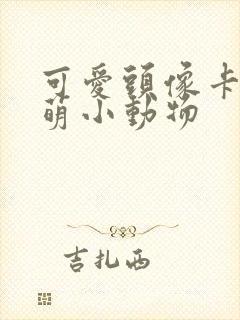 可愛頭像卡
萌小動物
吉扎西